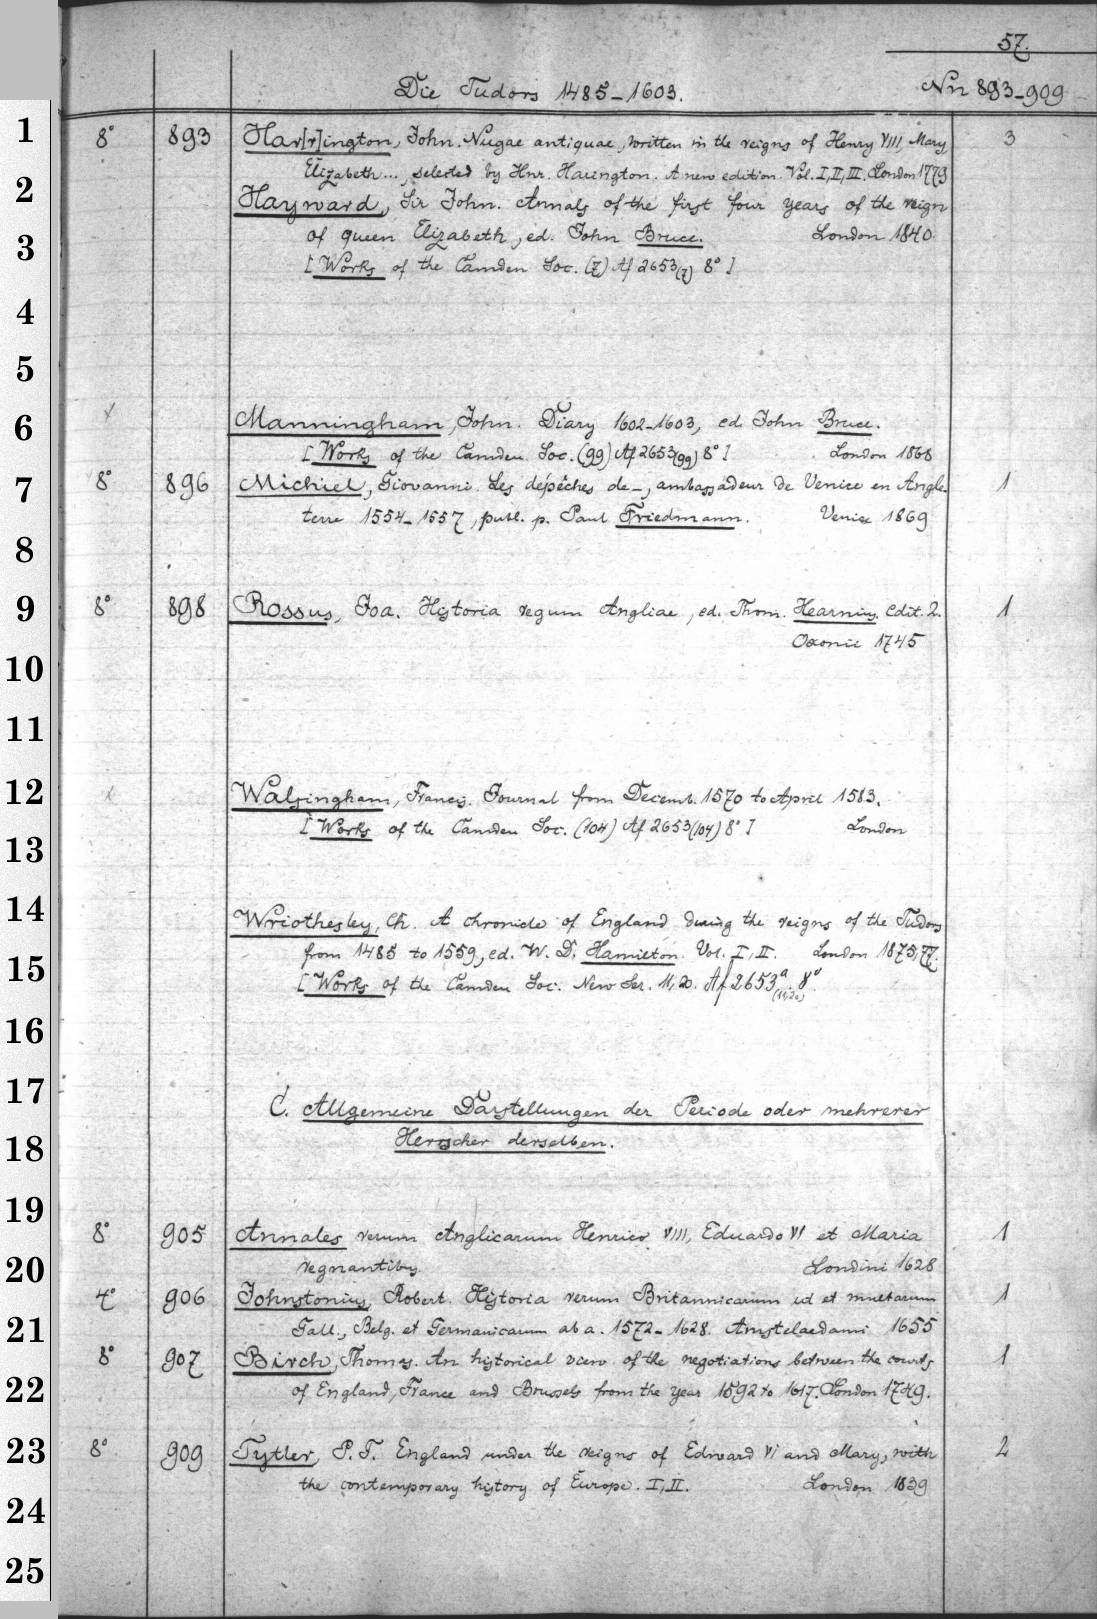 57.
Die Tudors 1485-1603. Nn 893-909
1 8° 893 Har[r]ington, John. Nugae antiquae, written in the reigns of Henry VIII, Mary, 3
Elizabeth..., selected by Hnr. Harington. A new edition. Vol. I, II, III. London 1779
2 Hayward, Sir John. Annals of the first four years of the reign
3 of queen Elizabeth, ed. John Bruce. London 1840.
[Works of the Camden Soc. (7) Af 2653(7) 8°]
4
5
6 Manningham, John. Diary 1602-1603, ed John Bruce.
[Works of the Camden Soc. (99) Af 2653(99) 8°] London 1868
7 8° 896 Michiel, Giovanni. Les dépêches de -, ambassadeur de Venice en Angle- 1
terre 1554-1557, publ. p. Paul Friedmann. Venise 1869
8
9 8° 898 Rossus, Joa. Historia regum Angliae, ed. Thom. Hearnius. Edit. 2. 1
Oxonii 1745
10
11
12 Walsingham, Francis. Journal from Decemb. 1570 to April 1583.
13 [Works of the Camden Soc. (104) Af 2653(104) 8°] London
14 Wriothesley, Ch. A chronicle of England during the reigns of the Tudors
15 from 1485 to 1559, ed. W. D. Hamilton. Vol. I, II. London 1875,77.
[Works of the Camden Soc. New Ser. 11, 20. Af 2653a (11,20) 8°.
16
17 C. Allgemeine Darstellungen der Periode oder mehrerer
18 Herrscher derselben.
19 8° 905 Annales rerum Anglicarum Henrico VIII, Eduardo VI et Maria 1
20 regnantibus. Londini 1628
4° 906 Johnstonius, Robert. Historia rerum Britannicarum ud et multarum 1
21 Gall., Belg. et Germanicarum ab a. 1572-1628. Amstelaedami 1655
8° 907 Birch, Thomas. An historical view of the negotiations between the courts 1
22 of England, France and Brussels from the year 1592 to 1617. London 1749.
23 8° 909 Tytler, P. F. England under the reigns of Edward VI and Mary, with 2
the contemporary history of Europe. I, II. London 1839
24
25